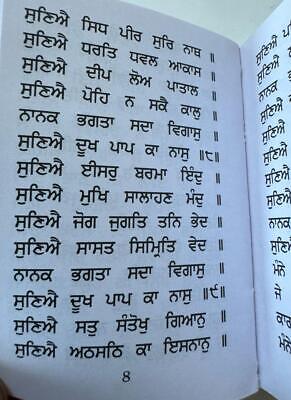 ਸੁਣਿਐ ਸਿਧ ਪੀਰ ਸੁਰਿ ਨਾਥ ॥
ਸੁਣਿਐ ਧਰਤਿ ਧਵਲ ਆਕਾਸ ॥
ਸੁਣਿਐ ਦੀਪ ਲੋਅ ਪਾਤਾਲ ॥
ਸੁਣਿਐ ਪੋਹਿ ਨ ਸਕੈ ਕਾਲੁ ॥
ਨਾਨਕ ਭਗਤਾ ਸਦਾ ਵਿਗਾਸੁ ॥
ਸੁਣਿਐ ਦੂਖ ਪਾਪ ਕਾ ਨਾਸੁ ॥੮॥
ਸੁਣਿਐ ਈਸਰੁ ਬਰਮਾ ਇੰਦੁ ॥
ਸੁਣਿਐ ਮੁਖਿ ਸਾਲਾਹਣ ਮੰਦੁ ॥
ਸੁਣਿਐ ਜੋਗ ਜੁਗਤਿ ਤਨਿ ਭੇਦ ॥
ਸੁਣਿਐ ਸਾਸਤ ਸਿਮ੍ਰਿਤਿ ਵੇਦ ॥
ਨਾਨਕ ਭਗਤਾ ਸਦਾ ਵਿਗਾਸੁ ॥
ਸੁਣਿਐ ਦੂਖ ਪਾਪ ਕਾ ਨਾਸੁ ॥੯॥
ਸੁਣਿਐ ਸਤੁ ਸੰਤੋਖੁ ਗਿਆਨੁ ॥
ਸੁਣਿਐ ਅਠਸਠਿ ਕਾ ਇਸਨਾਨੁ ॥
8
ਸੁਣਿਐ
ਸੁਣਿਐ
ਨਾਨਕ
ਸੁਣਿਐ
ਸੁਣਿਐ
ਸੁਣਿਐ
ਸੁਣਿਐ
ਸੁਣਿਐ
ਨਾਨਕ
ਸੁਣਿਐ
ਮੰਨੇ
ਜੇ
ਮੰਨੇ